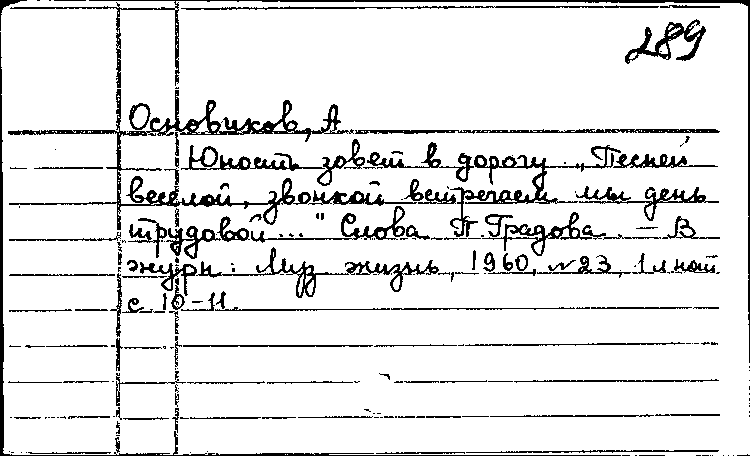 289
Основиков, А
Юность зовет в дорогу „Песней
веселой, звонкой встречаем мы день
трудовой..." Слова П. Градова. — В
журн: Муз жизнь, 1960, №23, 1 л нот
с 10-11.